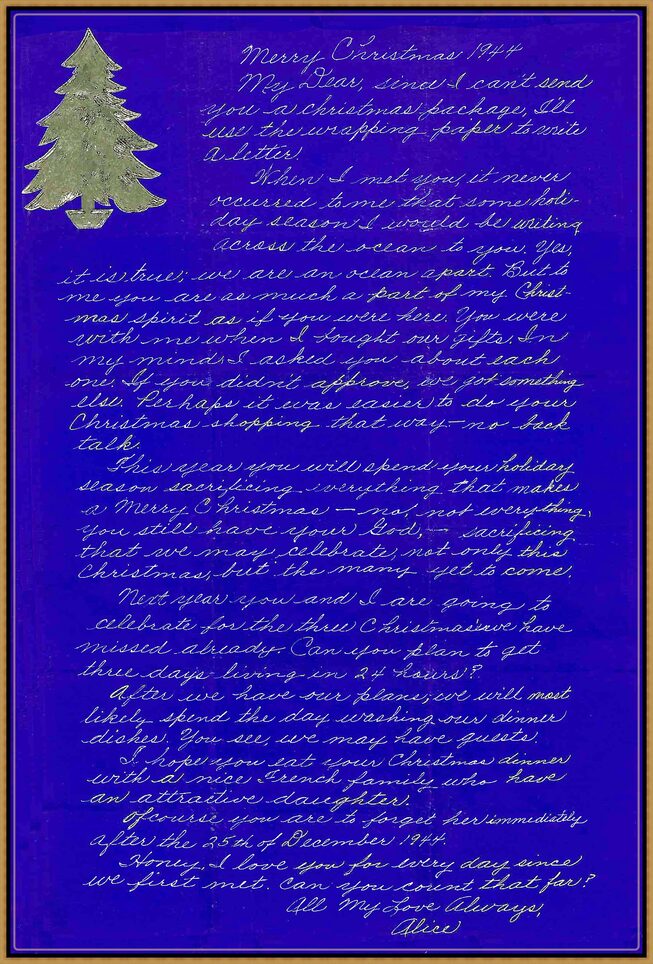 Merry Christmas 1944
My Dear, since I can't send
you a christmas package, I'll
use the wrapping paper to write
a letter.
When I met you, it never
occurred to me that some holi-
day season I would be writing
across the ocean to you. Yes,
it is true; we are an ocean apart. But to
me you are as much a part of my Christ-
mas spirit as if you were here. You were
with me when I bought our gifts. In
my mind I asked you about each
one. If you didn't approve, we got something
else. Perhaps it was easier to do your
Christmas shopping that way - no back
talk.
This year you will spend your holiday
season sacrificing everything that makes
a Merry Christmas - no, not everything,
you still have your God, - sacrificing
that we may celebrate, not only this
Christmas, but the many yet to come.
Next year you and I are going to
celebrate for the three Christmas's we have
missed already. Can you plan to get
three days living in 24 hours?
After we have our plans, we will most
likely spend the day washing our dinner
dishes. You see, we may have guests.
I hope you eat your Christmas dinner
with a nice French family who have
an attractive daughter.
Ofcourse you are to forget her immediately
after the 25th of December 1944.
Honey, I love you for every day since
we first met. Can you count that far?
All My Love Always,
Alice